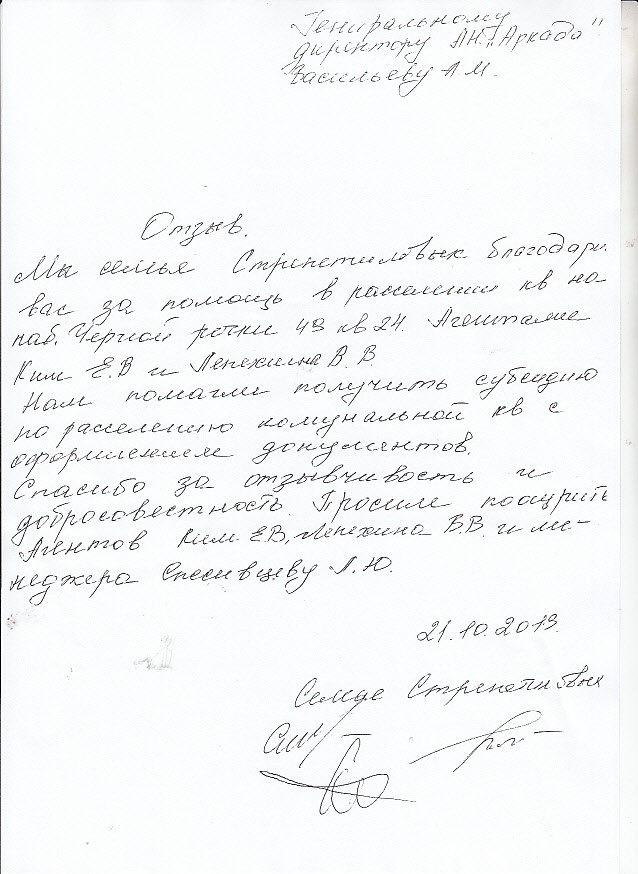 Гениральному
директору АН "Аркада"
Васильеву А.М.
Отзыв.
Мы семья благодарим
вас за помощь в расселении кв на
наб. Черной речки 49 кв 24. Агентами
Ким Е.В и Лепехина В.В.
Нам помагли получить субсидию
по расселению комунальной кв с
оформлением документов.
Спасибо за отзывчивость и
добросовестность. Просим поощрить
Агентов Ким Е.В, Лепехина В.В. и ме-
неджера Спесивцеву Л.Ю.
21.10.2019.
Семья